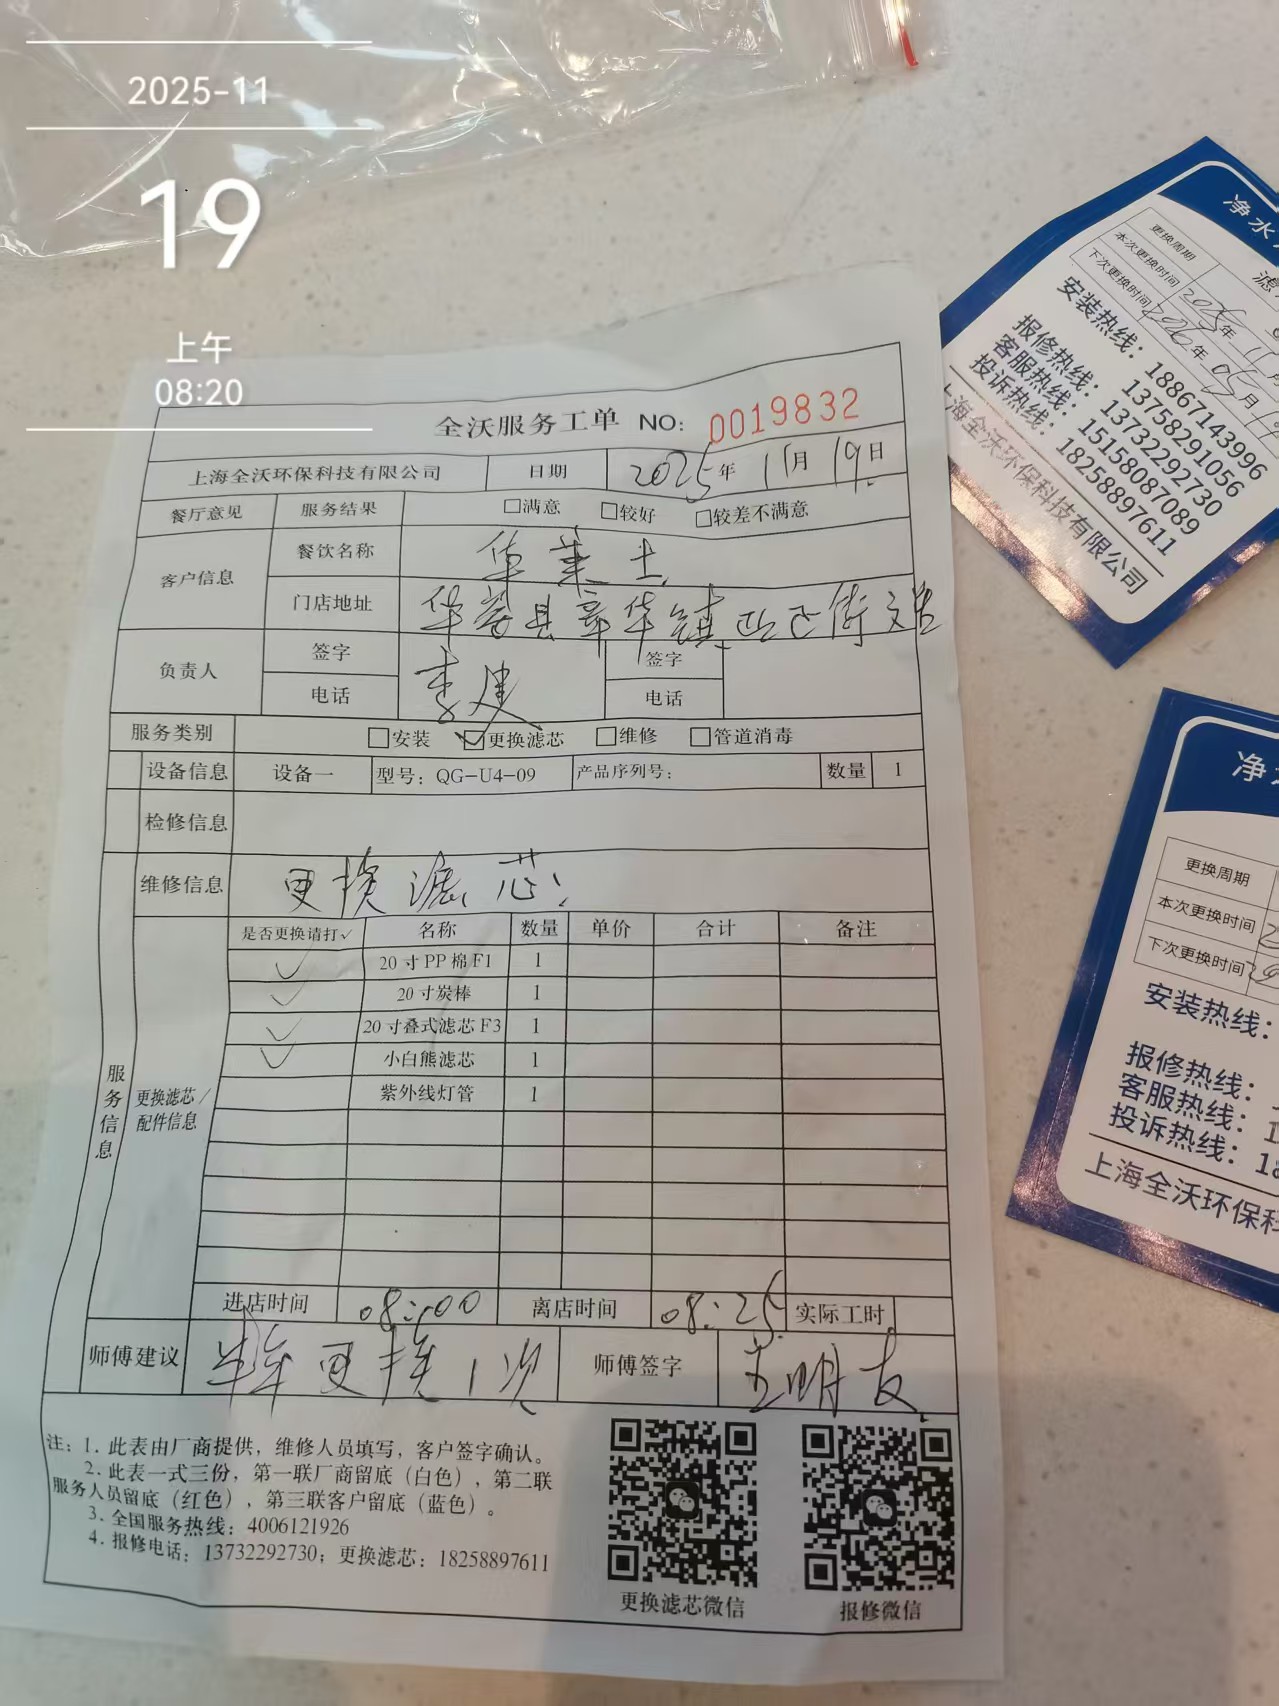 2025-11
19
上午
08:20
全沃服务工单 NO: 0019832
上海全沃环保科技有限公司 日期 2025年 11月 19日
餐厅意见 服务结果 □满意 □较好 □较差不满意
客户信息 餐饮名称 华莱士
门店地址 华容县章华镇
负责人 签字 李建 签字
电话 电话
服务类别 □安装 ☑更换滤芯 □维修 □管道消毒
设备信息 设备一 型号: QG-U4-09 产品序列号: 数量 1
检修信息
维修信息 更换滤芯
服务信息
更换滤芯/配件信息
是否更换请打✓ 名称 数量 单价 合计 备注
✓ 20寸PP棉F1 1
✓ 20寸炭棒 1
✓ 20寸叠式滤芯F3 1
✓ 小白熊滤芯 1
紫外线灯管 1
进店时间 08:00 离店时间 08:25 实际工时
师傅建议 半年更换1次 师傅签字 王明友
注: 1. 此表由厂商提供，维修人员填写，客户签字确认。
2. 此表一式三份，第一联厂商留底（白色），第二联
服务人员留底（红色），第三联客户留底（蓝色）。
3. 全国服务热线: 4006121926
4. 报修电话: 13732292730; 更换滤芯: 18258897611
更换滤芯微信 报修微信
净水
更换周期
本次更换时间 2025年 11月
下次更换时间 2026年 05月
安装热线: 18867143996
13758291056
报修热线: 13732292730
客服热线: 15158087089
投诉热线: 18258897611
上海全沃环保科技有限公司
净
更换周期
本次更换时间
下次更换时间
安装热线:
报修热线:
客服热线:
投诉热线:
上海全沃环保科